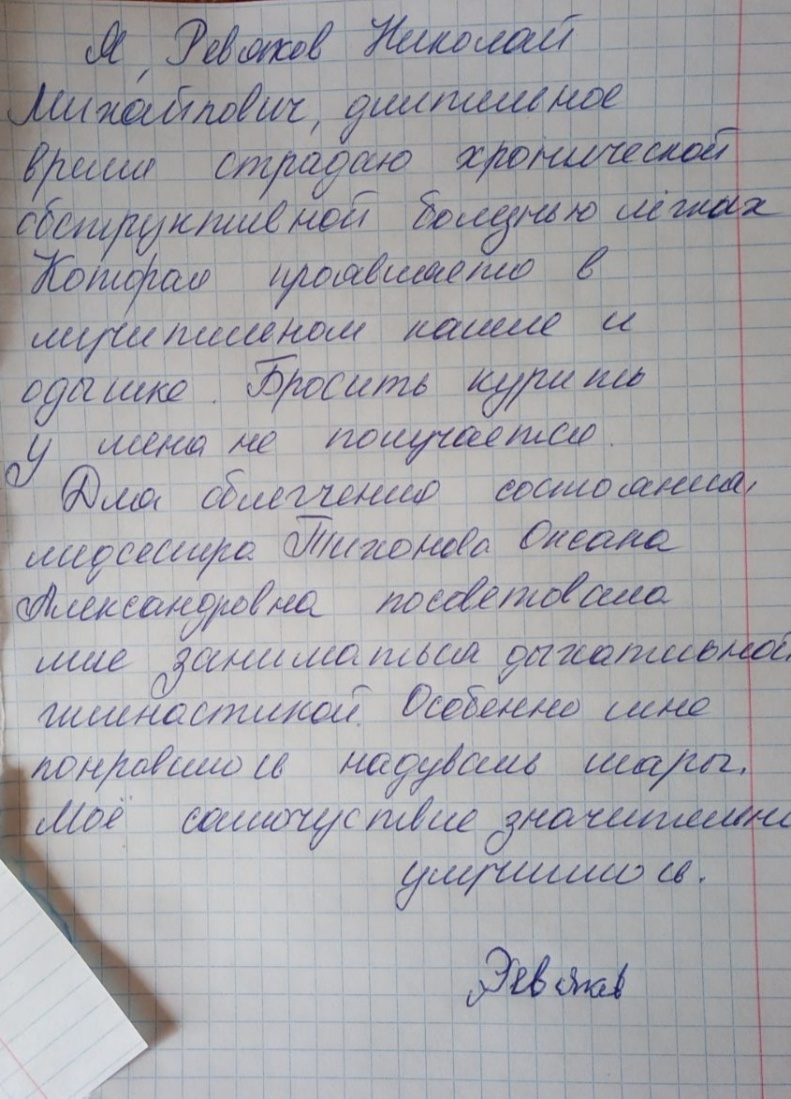 Я, Ревяков Николай
Михайлович, длительное
время страдаю хронической
обструктивной болезнью лёгких
Которая проявляется в
мучительном кашле и
одышке. Бросить курить
у меня не получается.
Для облегчения состояния,
медсестра Тихонова Оксана
Александровна посоветовала
мне заниматься дыхательной
гимнастикой. Особенно мне
понравилось надувать шары.
Моё самочуствие значительно
улучшилось.
Ревяков